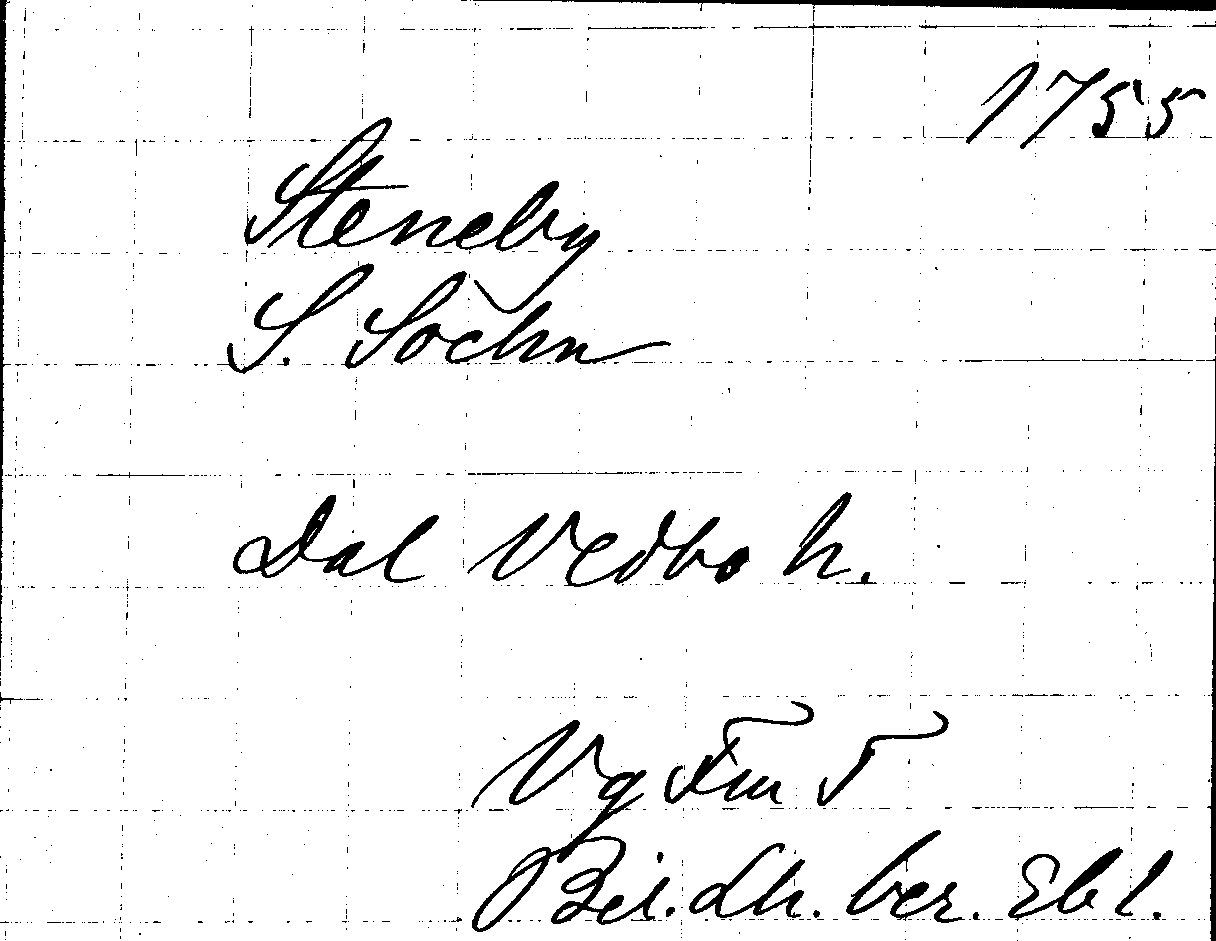 1755
Steneby
S. Sochn
Dal Vedbo h.
Vg Fm T
Bil. Lh. ber. Ebl.